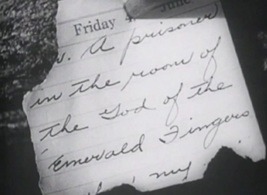 Friday June
A prisoner
in the room of
the God of the
Emerald Fingers
my